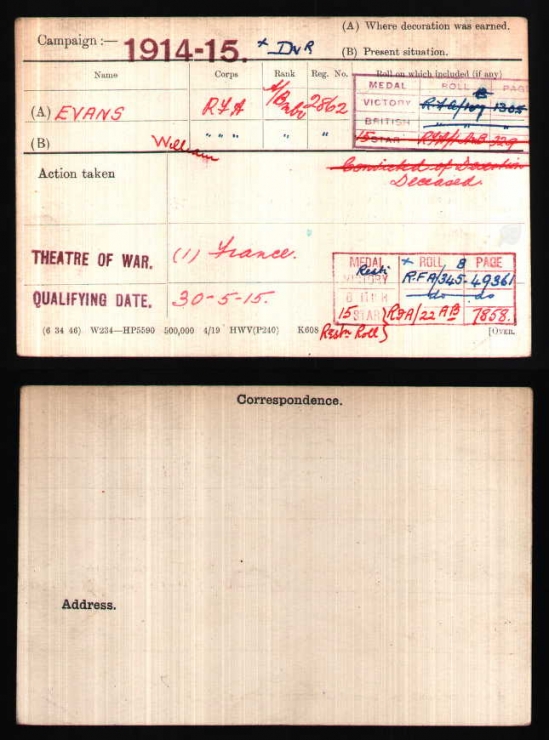 Campaign :— 1914-15. × DVR
(A) Where decoration was earned.
(B) Present situation.
Name Corps Rank Reg. No. Roll on which included (if any)
MEDAL ROLL PAGE
(A) EVANS RFA A/Bdr 2862
VICTORY RFA/107 B
BRITISH " " "
(B) William " " " " "
15 STAR RFA/1 AB 329
Action taken
Convicted of Desertion
Deceased
THEATRE OF WAR. (1) France.
QUALIFYING DATE. 30-5-15.
MEDAL × ROLL B PAGE
Restn VICTORY R.F.A/345 49361
do do
15 STAR RFA/22 AB 7858.
Restn Roll}
(6 34 46) W234—HP5590 500,000 4/19 HWV(P240) K608 [OVER.
Correspondence.
Address.